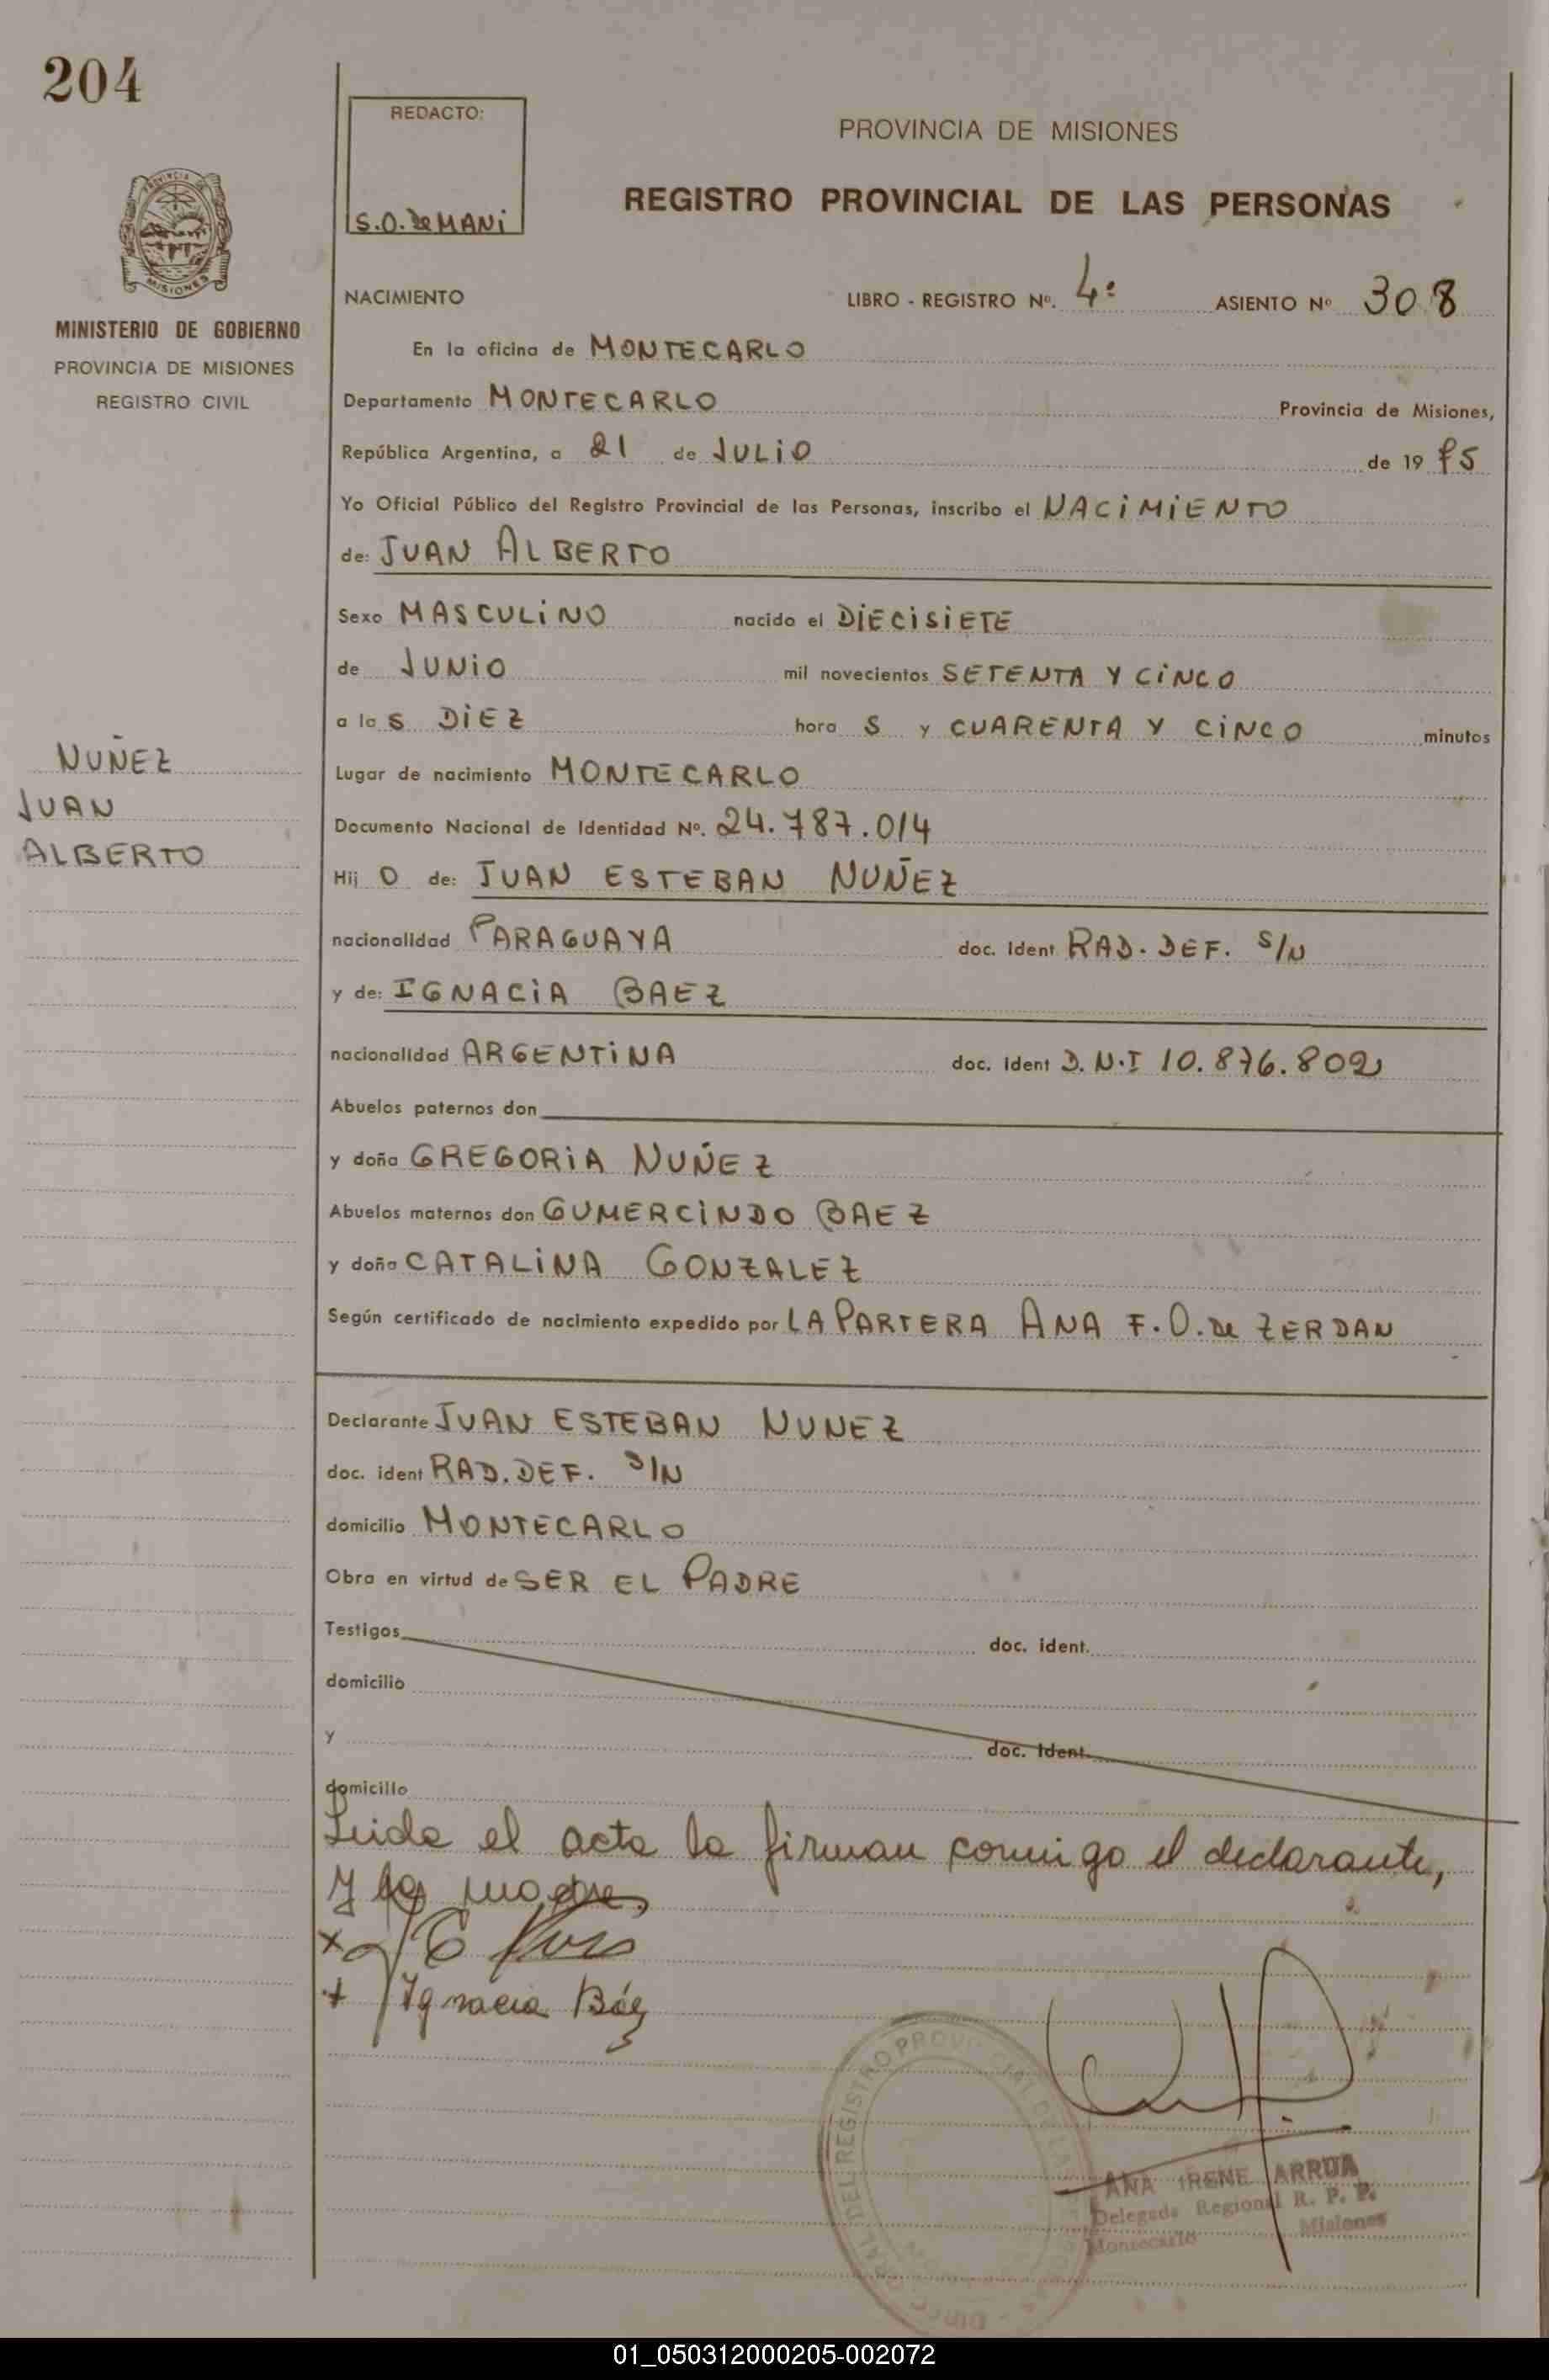 204
REDACTO:
S.O. de MANi
PROVINCIA DE MISIONES
REGISTRO PROVINCIAL DE LAS PERSONAS
PROVINCIA DE
MISIONES
MINISTERIO DE GOBIERNO
PROVINCIA DE MISIONES
REGISTRO CIVIL
NACIMIENTO LIBRO - REGISTRO Nº. 4º ASIENTO Nº 308
En la oficina de MONTECARLO
Departamento MONTECARLO Provincia de Misiones,
República Argentina, a 21 de JULIO de 1975
Yo Oficial Público del Registro Provincial de las Personas, inscribo el NACIMIENTO
de: JUAN ALBERTO
Sexo MASCULINO nacido el DIECISIETE
de JUNIO mil novecientos SETENTA Y CINCO
a las DIEZ horas y CUARENTA Y CINCO minutos
NUÑEZ
JUAN
ALBERTO
Lugar de nacimiento MONTECARLO
Documento Nacional de Identidad Nº. 24.787.014
Hijo de: JUAN ESTEBAN NUÑEZ
nacionalidad PARAGUAYA doc. ident RAD. DEF. S/N
y de: IGNACIA BAEZ
nacionalidad ARGENTINA doc. ident D.N.I 10.876.802
Abuelos paternos don
y doña GREGORIA NUÑEZ
Abuelos maternos don GUMERCINDO BAEZ
y doña CATALINA GONZALEZ
Según certificado de nacimiento expedido por LA PARTERA ANA F.O. de ZERDAN
Declarante JUAN ESTEBAN NUNEZ
doc. ident RAD. DEF. S/N
domicilio MONTECARLO
Obra en virtud de SER EL PADRE
Testigos doc. ident.
domicilio
y doc. ident.
domicilio
Leida el acta la firman conmigo el declarante,
y la madre
Ignacia Báez
ANA IRENE ARRUA
Delegada Regional R. P. P.
Montecarlo Misiones
01_050312000205-002072